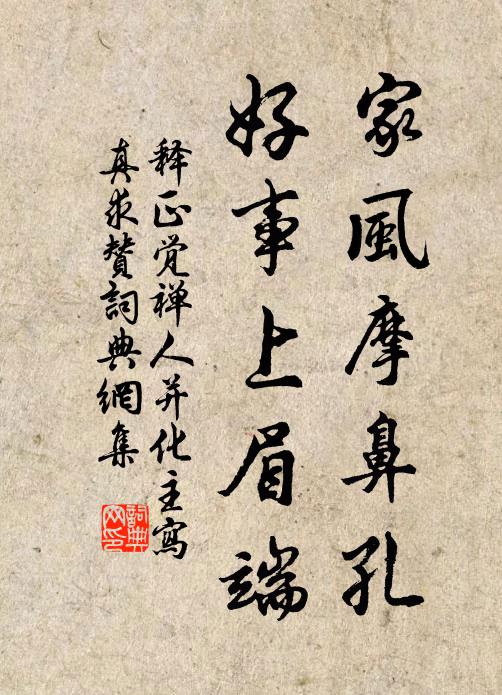 家風摩鼻孔
好事上眉端
释正觉禅人并化主寫
真求赞詞典網集
詞典网印